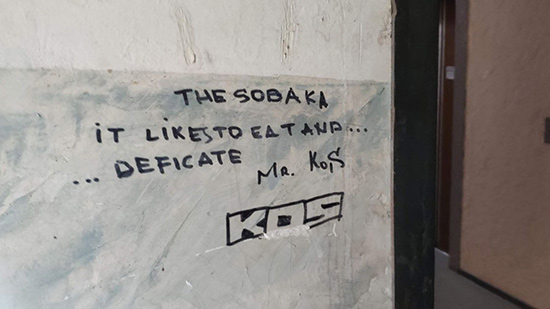 THE SOBAKA
iT LIKES TO EAT AND...
... DEFICATE
MR. KOS
KOS